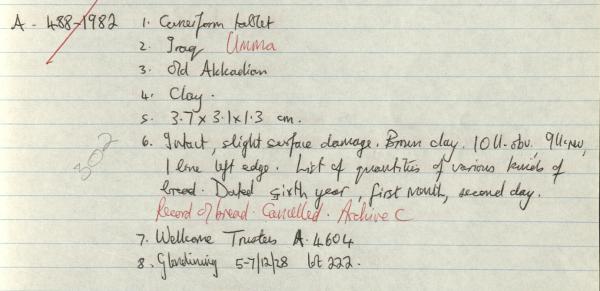 A - 488-1982 1. Cuneiform tablet
2. Iraq Umma
3. Old Akkadian
4. Clay.
5. 3.7 x 3.1 x 1.3 cm.
6. Intact, slight surface damage. Brown clay. 10 ll. obv. 9 ll. rev,
1 line left edge. List of quantities of various kinds of
bread. Dated sixth year, first month, second day.
Record of bread. Cancelled. Archive C
302
7. Wellcome Trustees A. 4604
8. Glendining 5-7/12/28 lot 222.